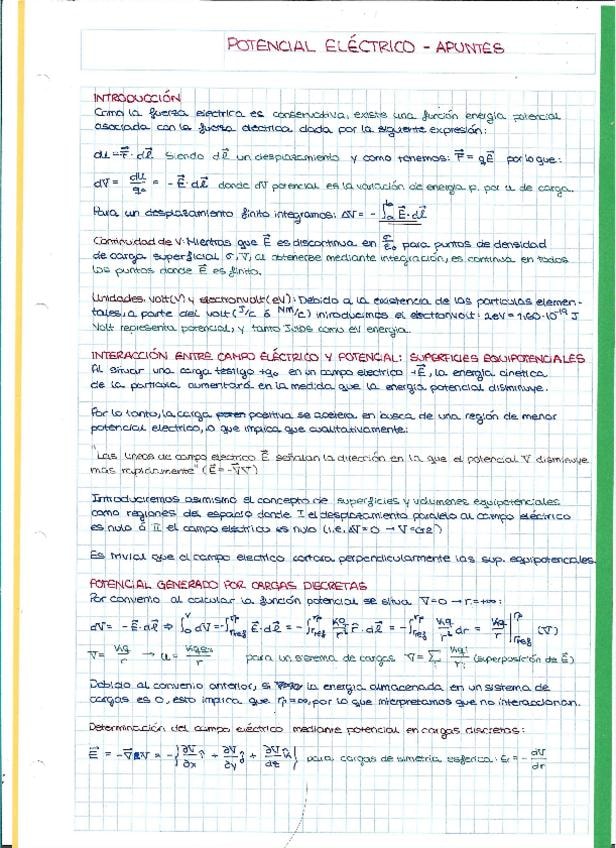 POTENCIAL ELÉCTRICO - APUNTES
INTRODUCCIÓN
Como la fuerza eléctrica es conservativa, existe una función energía potencial
asociada con la fuerza eléctrica dada por la siguiente expresión:
du = F⃗·dl⃗ siendo dl⃗ un desplazamiento y como tenemos: F⃗ = qE⃗ por lo que:
dV = du/q₀ = -E⃗·dl⃗ donde dV potencial es la variación de energía p. por u de carga.
Para un desplazamiento finito integramos: ΔV = -∫ₐᵇ E⃗·dl⃗
Continuidad de V: Mientras que E⃗ es discontinua en σ/ε₀ para puntos de densidad
de carga superficial σ, V, al obtenerse mediante integración, es continua en todos
los puntos donde E⃗ es finito.
Unidades: volt(V) y electronvolt(eV): Debido a la existencia de las partículas elemen-
tales, a parte del volt (J/C ó Nm/C) introducimos el electronvolt: 1eV = 1.60·10⁻¹⁹ J
Volt representa potencial, y tanto Julios como eV energía.
INTERACCIÓN ENTRE CAMPO ELÉCTRICO Y POTENCIAL: SUPERFICIES EQUIPOTENCIALES
Al situar una carga testigo +q₀ en un campo electrico +E⃗, la energía cinetica
de la partícula aumentará en la medida que la energía potencial disminuye.
Por lo tanto, la carga positiva se acelera en busca de una región de menor
potencial electrico, lo que implica que cualitativamente:
"Las lineas de campo electrico E⃗ señalan la dirección en la que el potencial V disminuye
más rapidamente" (E⃗ = -∇⃗V)
Introduciremos asimismo el concepto de superficies y volumenes equipotenciales
como regiones del espacio donde I el desplazamiento paralelo al campo eléctrico
es nulo ó II el campo electrico es nulo (i.e. ΔV = 0 → V = cte)
Es trivial que el campo electrico cortara perpendicularmente las sup. equipotenciales.
POTENCIAL GENERADO POR CARGAS DISCRETAS
Por convenio al calcular la función potencial se situa V=0 → r = +∞:
dV = -E⃗·dl⃗ ⇒ ∫₀ⱽ dV = -∫ E⃗·dl⃗ = -∫ kq/r² r̂·dl⃗ = -∫ kq/r² dr = kq/r | (V)
V = kq/r → u = kqq₀/r para un sistema de cargas V = Σ kqᵢ/rᵢ (superposición de E⃗)
Debido al convenio anterior, si la energía almacenada en un sistema de
cargas es 0, esto implica que rp = ∞, por lo que interpretamos que no interaccionan.
Determinación del campo eléctrico mediante potencial en cargas discretas:
E⃗ = -∇⃗V = -{∂V/∂x î + ∂V/∂y ĵ + ∂V/∂z k̂} para cargas de simetría esférica: Er = -dV/dr